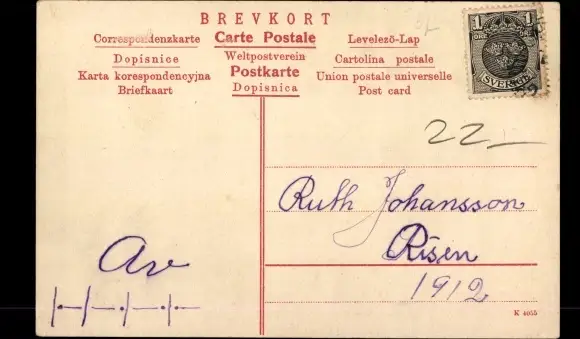 BREVKORT
Correspondenzkarte Carte Postale Levelező-Lap
Dopisnice Weltpostverein Cartolina postale
Karta korespondencyjna Postkarte Union postale universelle
Briefkaart Dopisnica Post card
1 1
ÖRE ÖRE
SVERIGE
22_
Ruth Johansson
Risen
1912
Av
K 4055